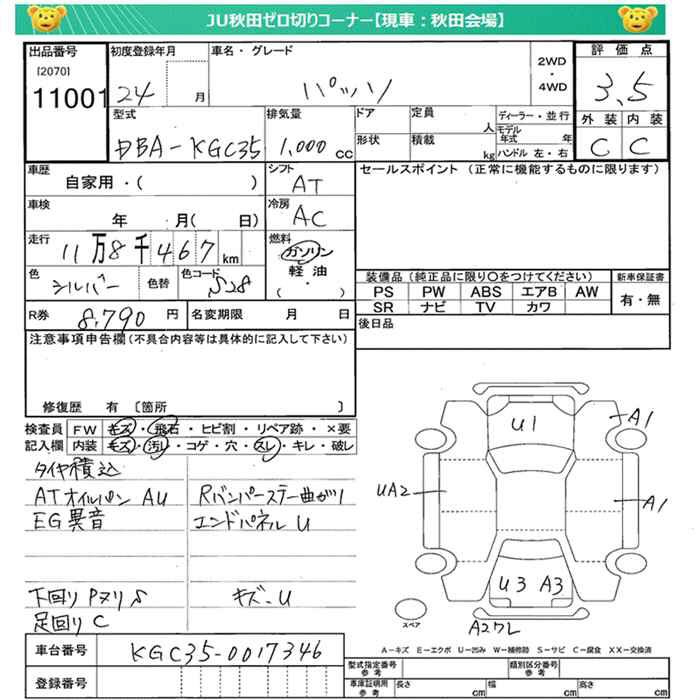 JU秋田ゼロ切りコーナー【現車：秋田会場】
出品番号 初度登録年月 車名・グレード 2WD・4WD 評価点
[2070]
11001 24 月 パッソ 3.5
型式 排気量 ドア 定員 人 ディーラー・並行 外装 内装
DBA-KGC35 1,000 cc 形状 積載 kg モデル年式 年 ハンドル 左・右 C C
車歴 シフト セールスポイント (正常に機能するものに限ります)
自家用・( ) AT
車検 年 月( 日) 冷房 AC
走行 11万8千467km 燃料 ガソリン
色 シルバー 色替 色コード S28 軽油・( )
装備品(純正品に限り〇をつけてください) 新車保証書
PS PW ABS エアB AW 有・無
SR ナビ TV カワ
R券 8,790 円 名変期限 月 日 後日品
注意事項申告欄(不具合内容等は具体的に記入して下さい)
修復歴 有 〔箇所 〕
検査員 FW キズ・飛石・ヒビ割・リペア跡・×要
記入欄 内装 キズ・汚レ・コゲ・穴・スレ・キレ・破レ
タイヤ積込
ATオイルパン AU Rバンパーステー曲がり
EG異音 エンドパネル U
下回り Pヌリ S キズ-U
足回り C
U1
A1
UA2
A1
U3 A3
A2ワレ
スペア
A-キズ E-エクボ U-凹み W-補修跡 S-サビ C-腐食 XX-交換済
車台番号 KGC35-0017346
登録番号
型式指定番号 参考 類別区分番号 参考
車庫証明用 参考 長さ cm 幅 cm 高さ cm